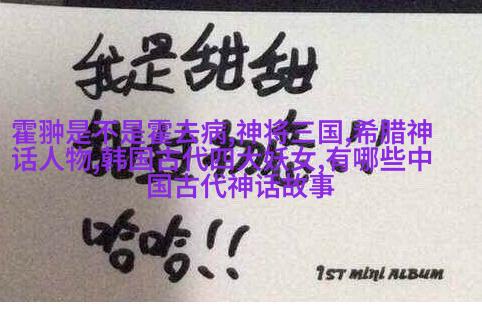 我是甜甜
霍翀是不是霍去病,神将三国,希腊神
话人物,韩国古代四大妖女,有哪些中
国古代神话故事
哈哈!!
1ST mini ALBUM